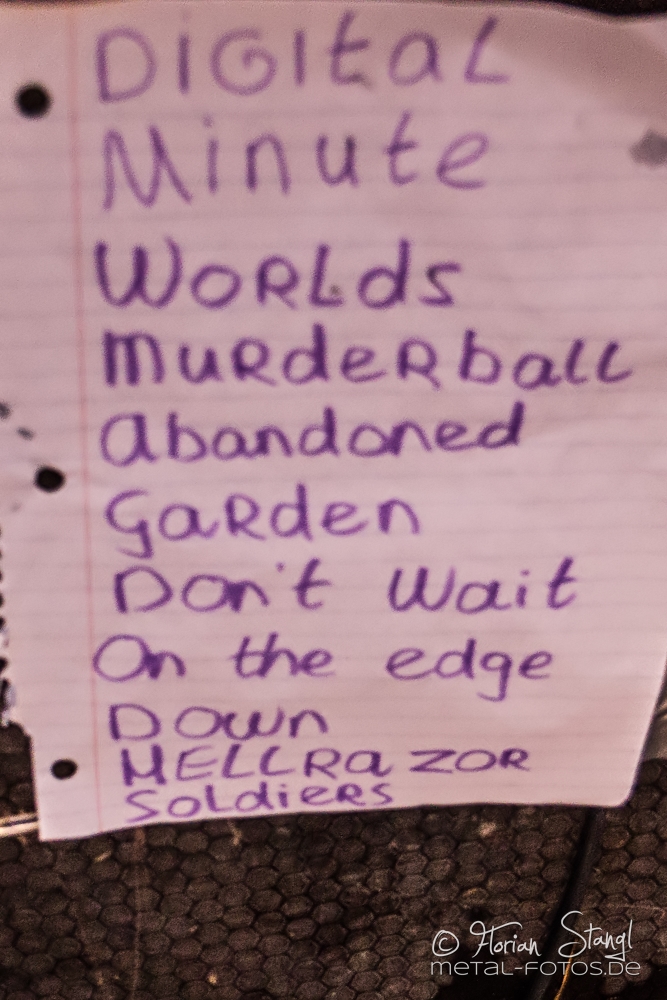 DiGItaL
Minute
WoRLds
MuRdeRball
abandoned
GaRden
Don't Wait
On the edge
Down
HELLRazOR
SoLdiERs
© Florian Stangl
METAL-FOTOS.DE